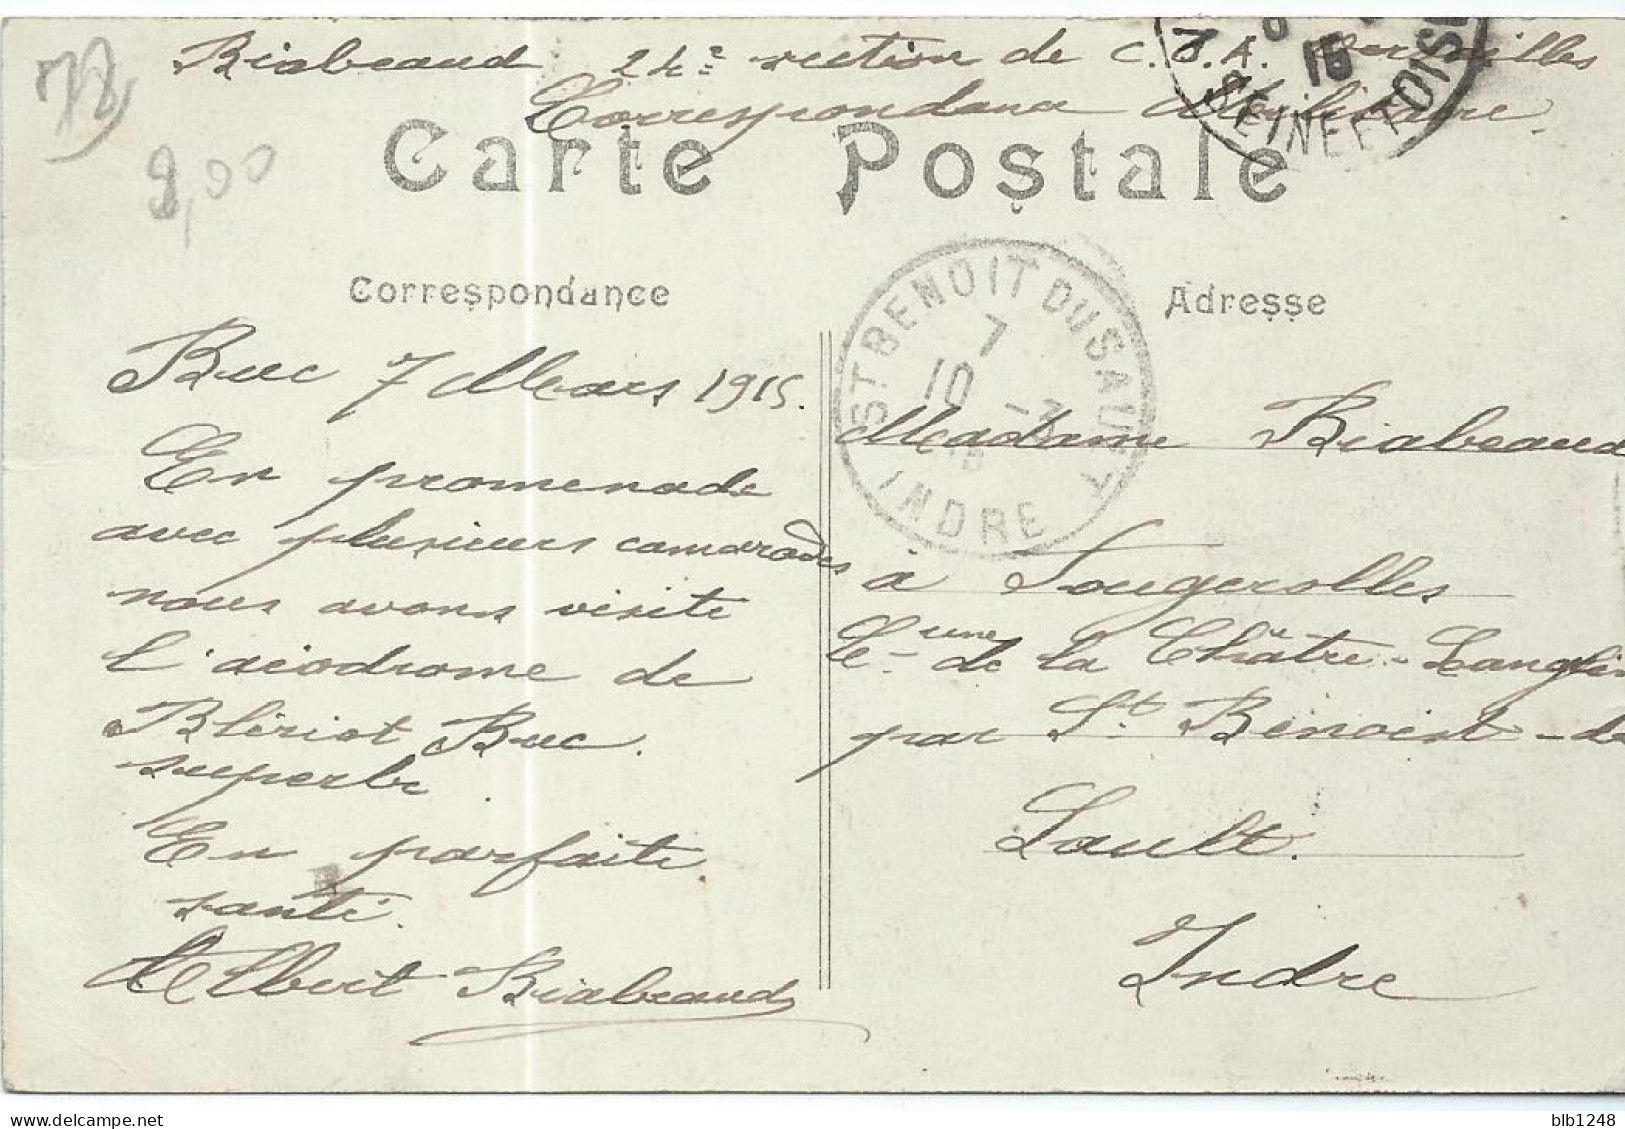 78
9,00
Riabeaud 24e section de C.O.A. Versailles
Correspondance Militaire.
15
SEINE ET OISE
Carte Postale
Correspondance
Adresse
ST BENOIT DU SAULT
7
10 -3
15
INDRE
Buc 7 Mars 1915.
En promenade
avec plusieurs camarades
nous avons visité
l'aéodrome de
Blériot Buc.
superbe.
En parfaite
santé.
Albert Riabeaud
Madame Riabeaud
à Fougerolles
Cne de la Châtre-Langlin
par St Benoist-du
Sault.
Indre
blb1248